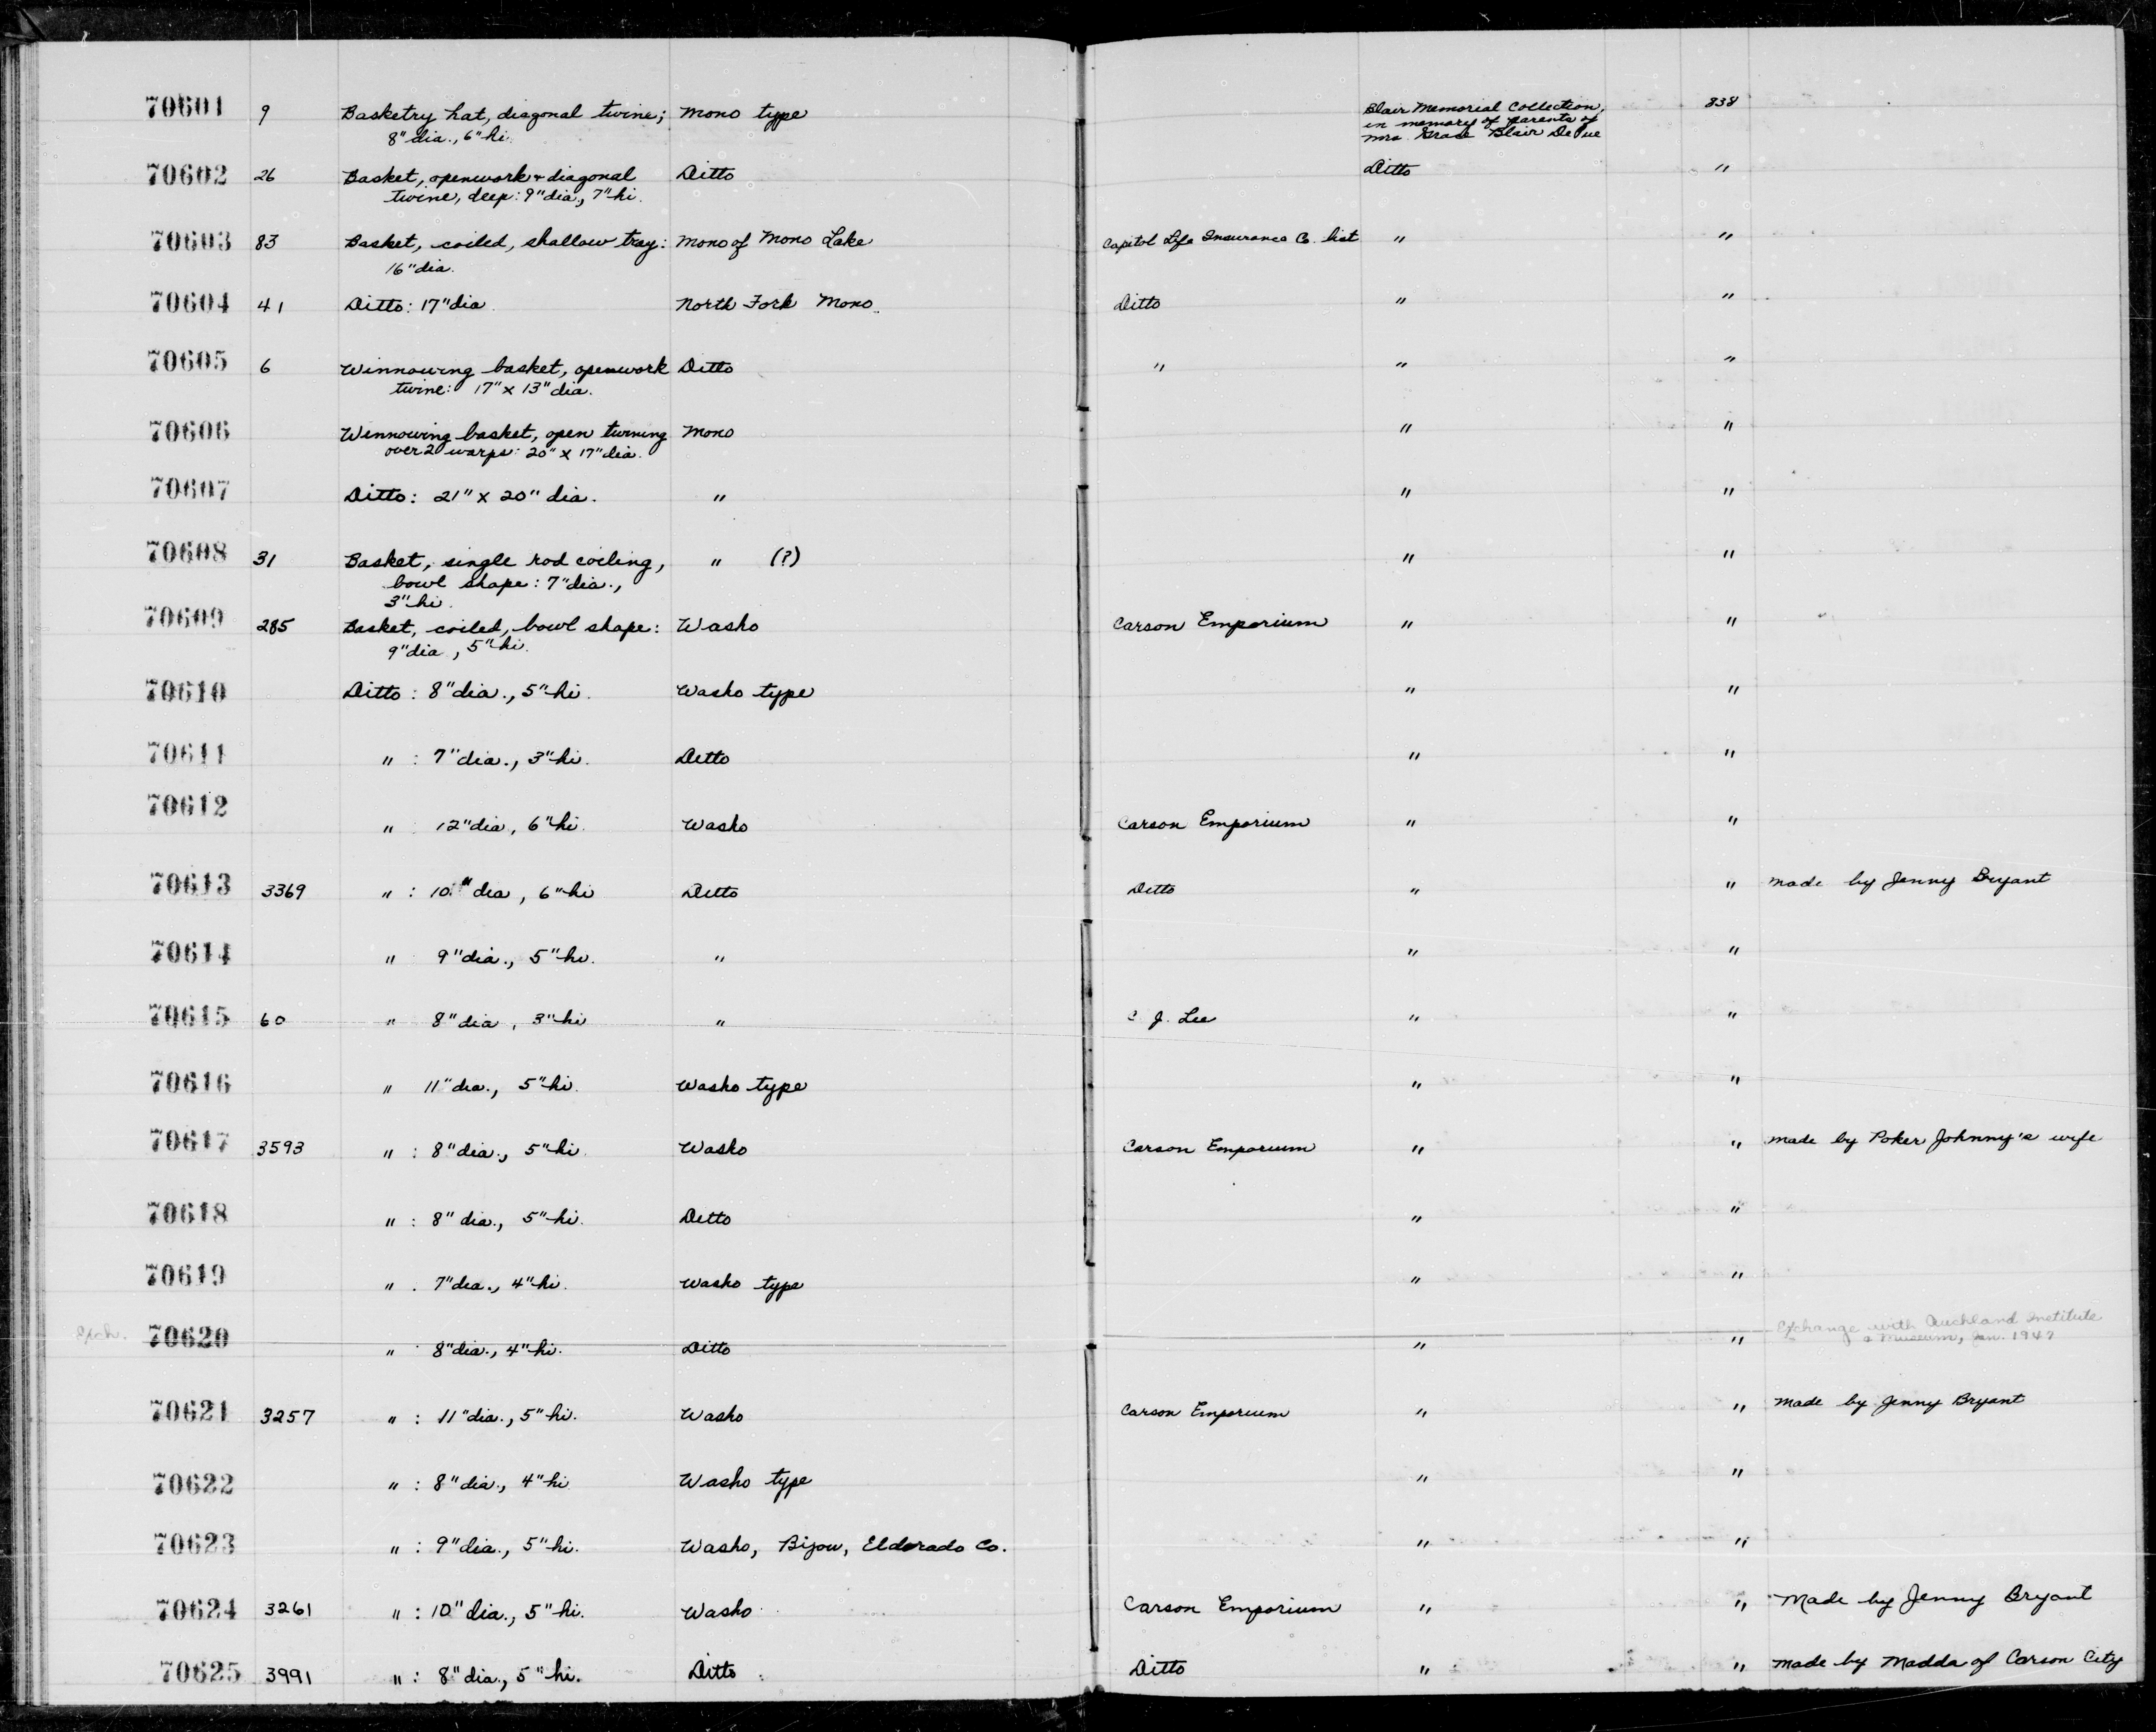 70601 9 Basketry hat, diagonal twine; Mono type Blair Memorial Collection, 838
8" dia., 6" hi. in memory of parents of
Mrs. Grace Blair DePue
70602 26 Basket, openwork + diagonal Ditto Ditto "
twine, deep: 9" dia., 7" hi.
70603 83 Basket, coiled, shallow tray: Mono of Mono Lake Capitol Life Insurance Co. list " "
16" dia.
70604 41 Ditto: 17" dia North Fork Mono. Ditto " "
70605 6 Winnowing basket, openwork Ditto " " "
twine: 17" x 13" dia.
70606 Winnowing basket, open twining Mono " "
over 2 warps: 20" x 17" dia.
70607 Ditto: 21" x 20" dia. " " "
70608 31 Basket, single rod coiling, " (?) " "
bowl shape: 7" dia.,
3" hi.
70609 285 Basket, coiled, bowl shape: Washo Carson Emporium " "
9" dia, 5" hi.
70610 Ditto: 8" dia., 5" hi. Washo type " "
70611 " : 7" dia., 3" hi. Ditto " "
70612 " : 12" dia, 6" hi. Washo Carson Emporium " "
70613 3369 " : 10" dia, 6" hi Ditto Ditto " " made by Jenny Bryant
70614 " 9" dia., 5" hi. " " "
70615 60 " 8" dia, 3" hi " C J. Lee " "
70616 " 11" dia., 5" hi. Washo type " "
70617 3593 " : 8" dia., 5" hi. Washo Carson Emporium " " made by Poker Johnny's wife
70618 " : 8" dia., 5" hi. Ditto " "
70619 " : 7" dia., 4" hi. Washo type " "
Exch. 70620 " : 8" dia., 4" hi. Ditto " " Exchange with Auckland Institute
& Museum, Jan. 1947
70621 3257 " : 11" dia., 5" hi. Washo Carson Emporium " " made by Jenny Bryant
70622 " : 8" dia., 4" hi Washo type " "
70623 " : 9" dia., 5" hi. Washo, Bijou, Eldorado Co. " "
70624 3261 " : 10" dia., 5" hi. Washo Carson Emporium " " Made by Jenny Bryant
70625 3991 " : 8" dia., 5" hi. Ditto Ditto " " made by Madda of Carson City